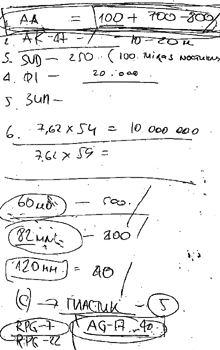 AA = 100 + 700-800
2. AK-47 - 10-20к
3. SVD - 250 (100
4. Ф1 - 20.000
5. ЗИП -
6. 7,62 x 54 = 10.000 000
7,62 x 59 =
60мм - 500/
82мм - 200/
120мм = 40/
(C) → ПЛАСТИК - 5
RPG-7 AG-17 40
RPG-22